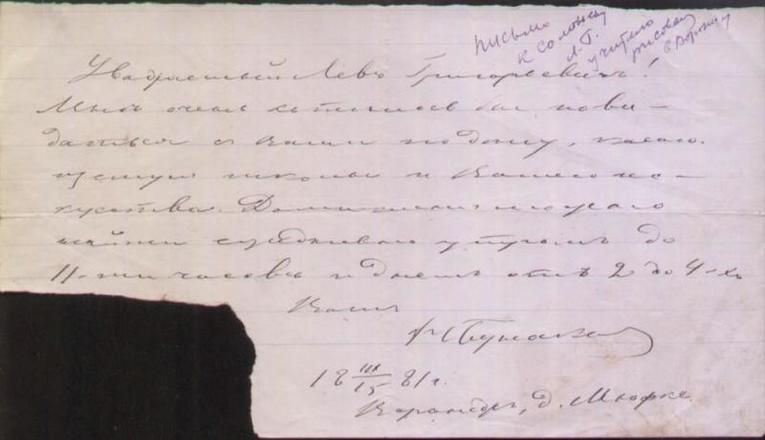 письмо
к Соловьеву
Л. Г.
учителю
рисован
г. Воронеж
Уважаемый Левъ Григорьевичъ!
Мнѣ очень хотѣлось бы пови-
даться с Вами по дѣлу, касаю-
щемуся школы и Вашего ис-
кусства. Дома меня можно
найти ежедневно утромъ до
11-ти часовъ и днемъ отъ 2 до 4-хъ
Вашъ
Бунаковъ
18 III/15 81 г.
Воронежъ, д.